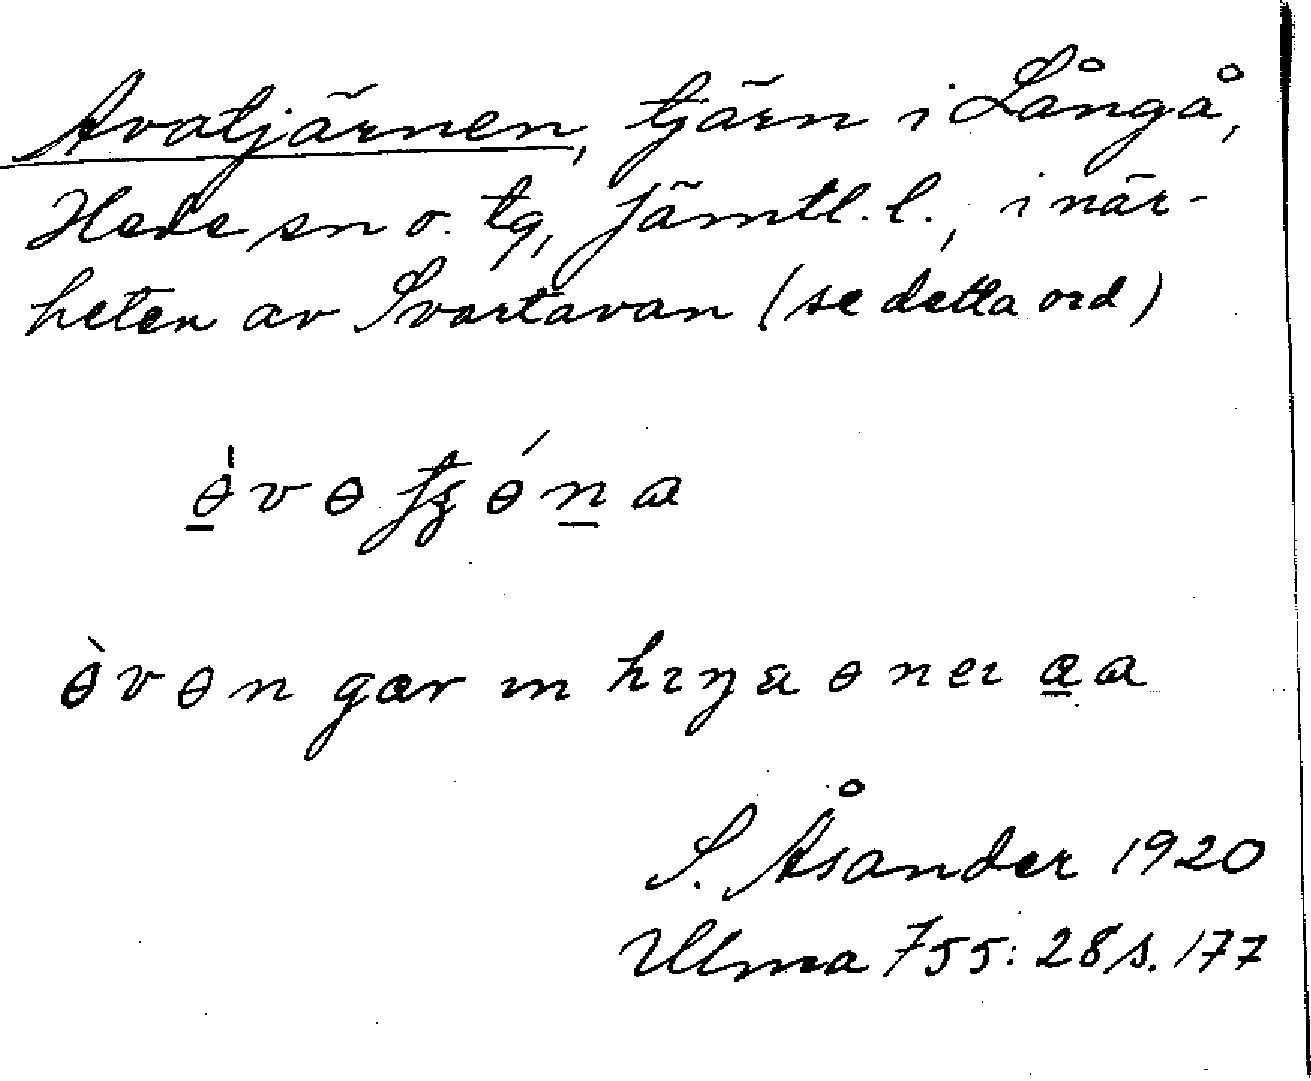 Avatjärnen, tjärn i Långå,
Hede sn o. tg, Jämtl. l., i när-
heten av Svartavan (se detta ord)
ɵ̱̀vɵtʒɵ́ṉa
ɵ̀vɵn gær ɪn
S. Åsander 1920
Ulma 755:28 s. 177